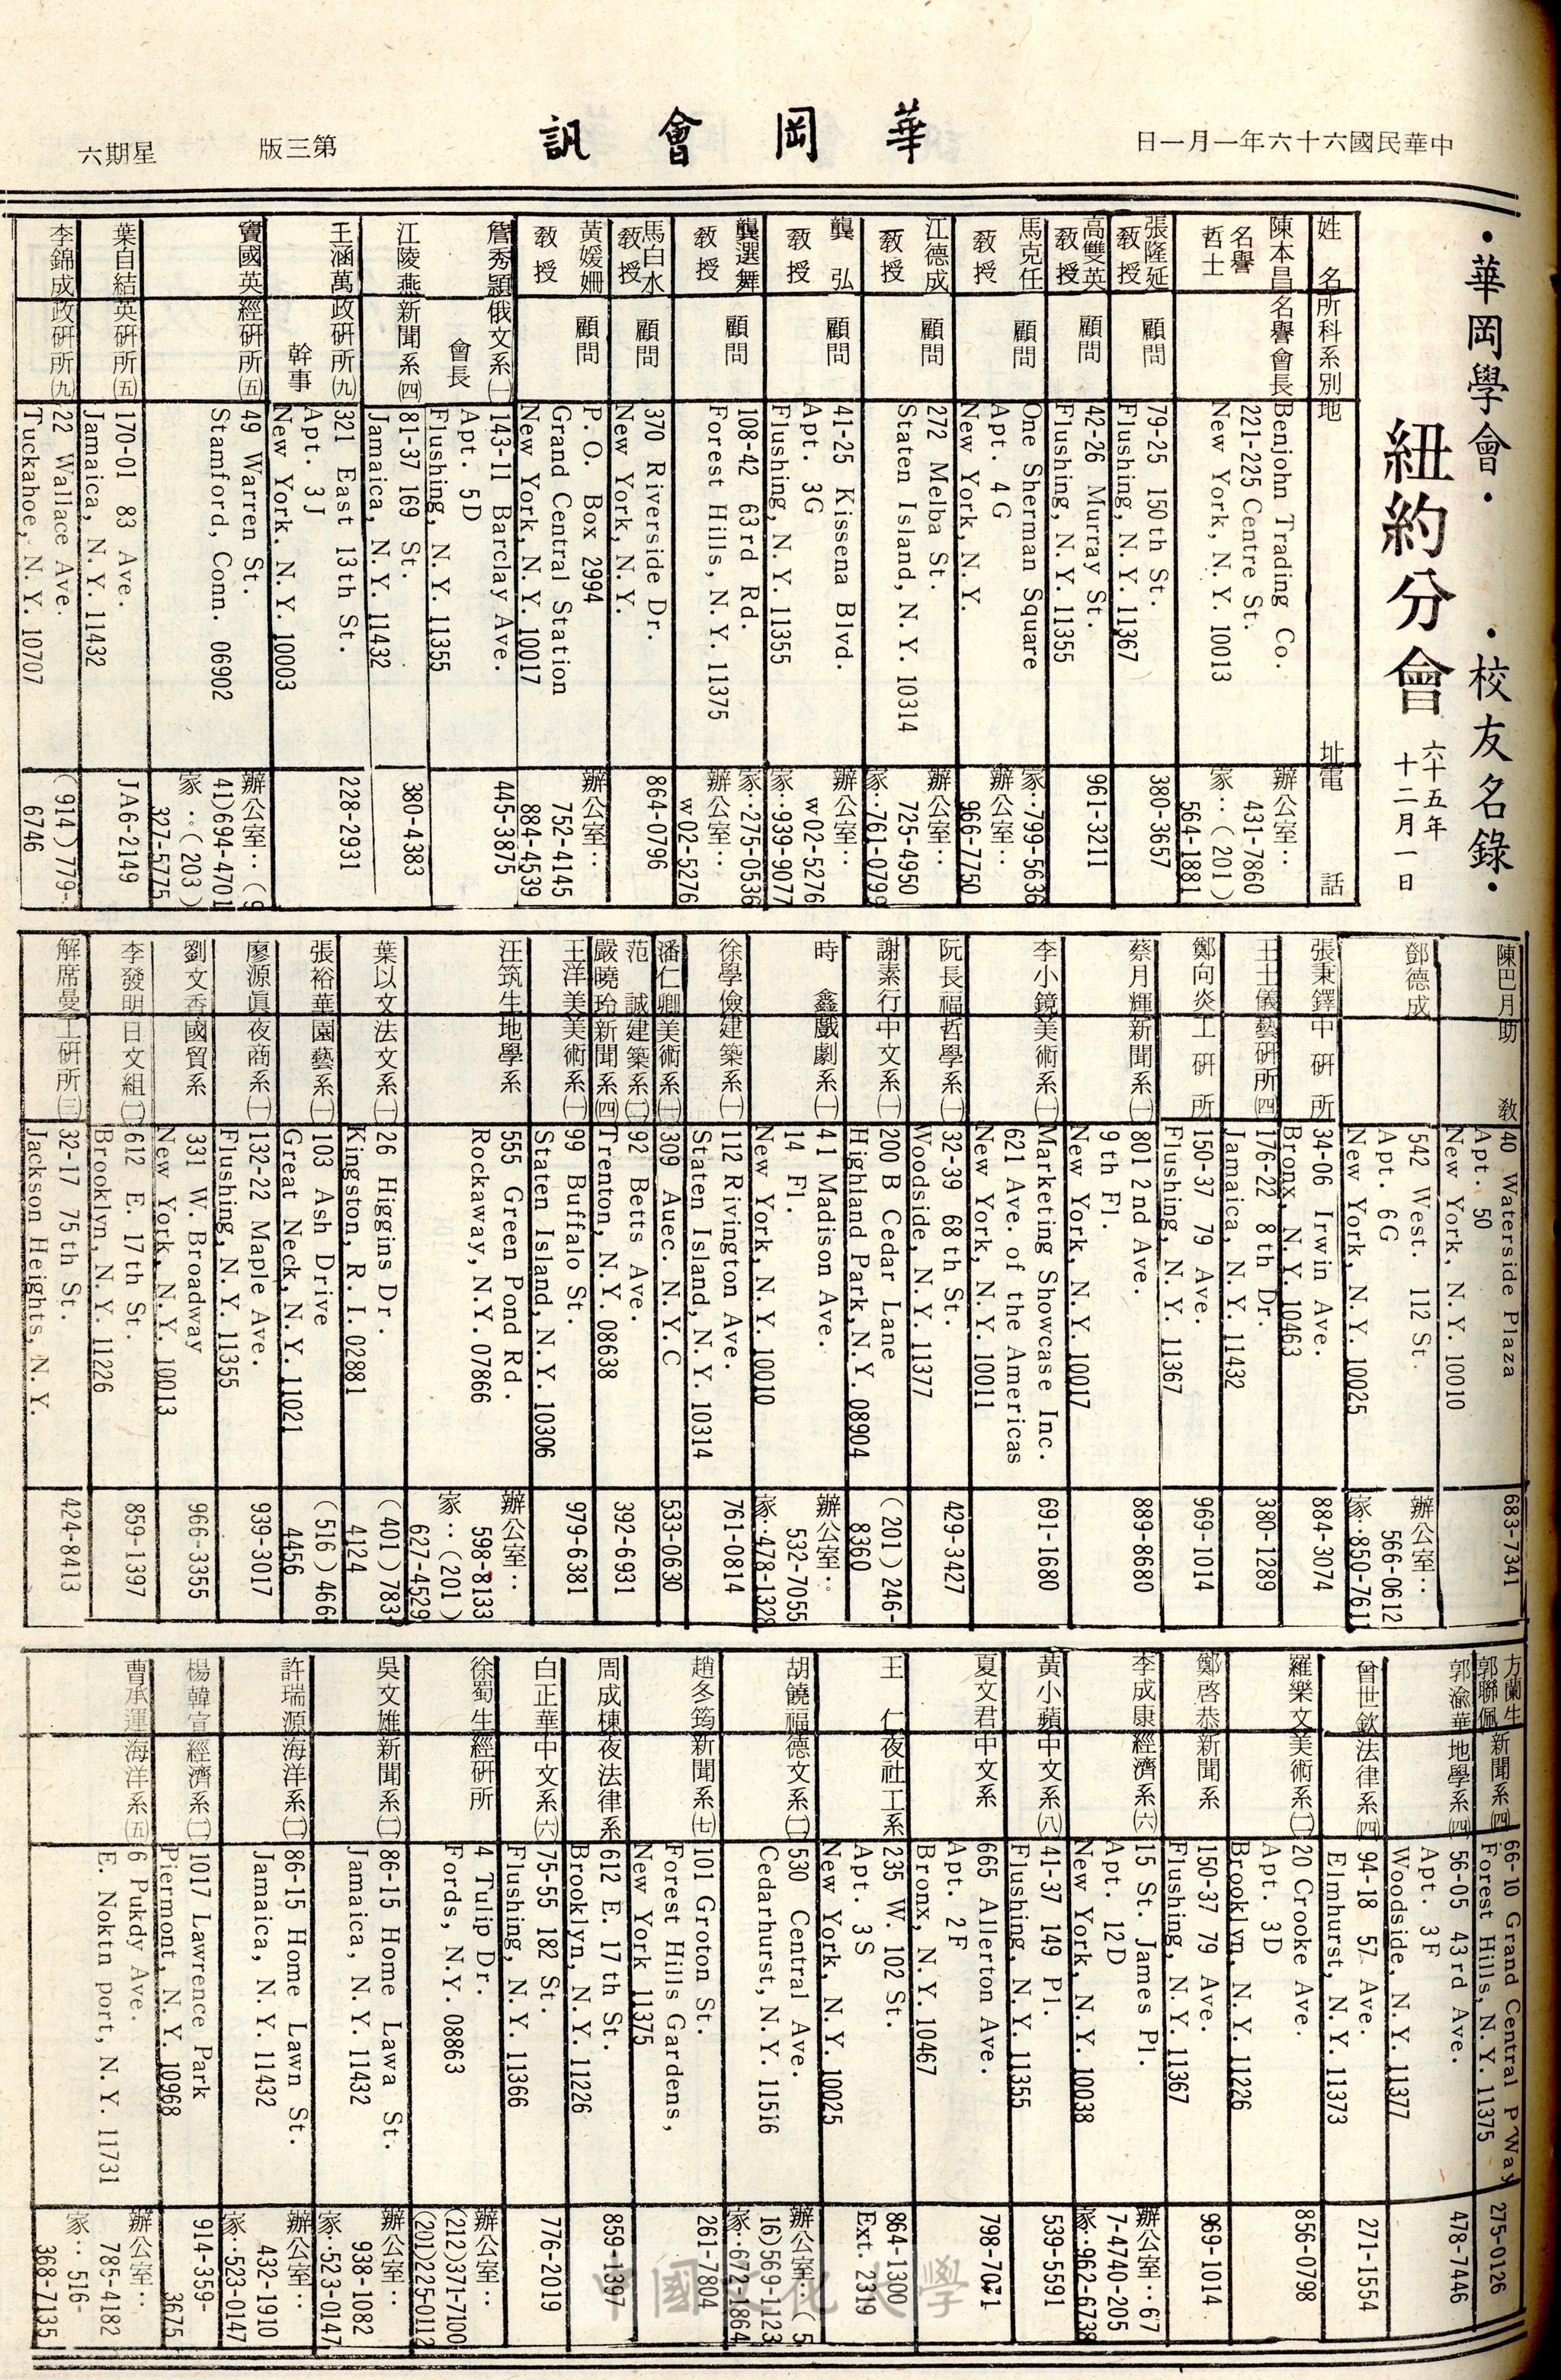 中華民國六十六年一月一日
華岡會訊
第三版
星期六
·華岡學會·
·校友名錄·
紐約分會
六十五年
十二月一日
姓名 所科系別 地址 電話
陳本昌 名譽會長 Benjohn Trading Co. 辦公室:
名譽 221-225 Centre St. 431-7860
哲士 New York, N.Y. 10013 家:(201)
564-1881
張隆延 顧問 79-25 150th St. 380-3657
教授 Flushing, N.Y. 11367
高雙英 顧問 42-26 Murray St. 961-3211
教授 Flushing, N.Y. 11355
馬克任 顧問 One Sherman Square 家:799-5636
教授 Apt. 4G 辦公室:
New York, N.Y. 966-7750
江德成 顧問 272 Melba St. 辦公室:
教授 Staten Island, N.Y. 10314 725-4950
家:761-0799
龔弘 顧問 41-25 Kissena Blvd. 辦公室:
教授 Apt. 3G w02-5276
Flushing, N.Y. 11355 家:939-9077
龔選舞 顧問 108-42 63rd Rd. 家:275-0536
教授 Forest Hills, N.Y. 11375 辦公室:
w02-5276
馬白水 顧問 370 Riverside Dr. 864-0796
教授 New York, N.Y.
黃媛珊 顧問 P.O. Box 2994 辦公室:
教授 Grand Central Station 752-4145
New York, N.Y. 10017 884-4539
詹秀穎 俄文系㈠ 143-11 Barclay Ave. 445-3875
會長 Apt. 5D
Flushing, N.Y. 11355
江陵燕 新聞系㈣ 81-37 169 St. 380-4383
Jamaica, N.Y. 11432
王涵萬 政研所㈨ 321 East 13th St. 228-2931
幹事 Apt. 3J
New York, N.Y. 10003
竇國英 經研所㈤ 49 Warren St. 辦公室:(9
Stamford, Conn. 06902 41)694-4701
家:(203)
327-5775
葉自結 英研所㈤ 170-01 83 Ave. JA6-2149
Jamaica, N.Y. 11432
李錦成 政研所㈨ 22 Wallace Ave. (914)779-
Tuckahoe, N.Y. 10707 6746
陳巴月 助教 40 Waterside Plaza 683-7341
Apt. 50
New York, N.Y. 10010
鄧德成 542 West. 112 St. 辦公室:
Apt. 6G 566-0612
New York, N.Y. 10025 家:850-7611
張秉鐸 中研所 34-06 Irwin Ave. 884-3074
Bronx, N.Y. 10463
王士儀 藝研所㈣ 176-22 8th Dr. 380-1289
Jamaica, N.Y. 11432
鄭向炎 工研所 150-37 79 Ave. 969-1014
Flushing, N.Y. 11367
蔡月輝 新聞系 801 2nd Ave. 889-8680
9th Fl.
New York, N.Y. 10017
李小鏡 美術系 Marketing Showcase Inc. 691-1680
621 Ave. of the Americas
New York, N.Y. 10011
阮長福 哲學系 32-39 68th St. 429-3427
Woodside, N.Y. 11377
謝素行 中文系 200B Cedar Lane (201)246-
Highland Park, N.Y. 08904 8360
時鑫 戲劇系 41 Madison Ave. 辦公室:
14 Fl. 532-7055
New York, N.Y. 10010 家:478-1328
徐學儉 建築系 112 Rivington Ave. 761-0814
Staten Island, N.Y. 10314
潘仁卿 美術系 309 Auec. N.Y.C 533-0630
范誠 建築系 92 Betts Ave. 392-6931
嚴曉玲 新聞系㈣ Trenton, N.Y. 08638
王洋美 美術系 99 Buffalo St. 979-6381
Staten Island, N.Y. 10306
汪筑生 地學系 555 Green Pond Rd. 辦公室:
Rockaway, N.Y. 07866 598-8133
家:(201)
627-4529
葉以文 法文系 26 Higgins Dr. (401)783-
Kingston, R.I. 02881 4124
張裕華 園藝系 103 Ash Drive (516)466-
Great Neck, N.Y. 11021 4456
廖源眞 夜商系 132-22 Maple Ave. 939-3017
Flushing, N.Y. 11355
劉文香 國貿系 331 W. Broadway 966-3355
New York, N.Y. 10013
李發明 日文組 612 E. 17th St. 859-1397
Brooklyn, N.Y. 11226
解席曼 工研所 32-17 75th St. 424-8413
Jackson Heights, N.Y.
方蘭生 新聞系㈣ 66-10 Grand Central P'Way 275-0126
郭聯佩 Forest Hills, N.Y. 11375
郭渝華 地學系㈣ 56-05 43rd Ave. 478-7446
Apt. 3F
Woodside, N.Y. 11377
曾世欽 法律系㈣ 94-18 57. Ave. 271-1554
Elmhurst, N.Y. 11373
羅樂文 美術系 20 Crooke Ave. 856-0798
Apt. 3D
Brooklyn, N.Y. 11226
鄭啓恭 新聞系 150-37 79 Ave. 969-1014
Flushing, N.Y. 11367
李成康 經濟系㈥ 15 St. James Pl. 辦公室:67
Apt. 12D 7-4740-205
New York, N.Y. 10038 家:962-6738
黃小蘋 中文系㈧ 41-37 149 Pl. 539-5591
Flushing, N.Y. 11355
夏文君 中文系 665 Allerton Ave. 798-7071
Apt. 2F
Bronx, N.Y. 10467
王仁 夜社工系 235 W. 102 St. 864-1300
Apt. 3S Ext. 2319
New York, N.Y. 10025
胡饒福 德文系 530 Central Ave. 辦公室:(5
Cedarhurst, N.Y. 11516 16)569-1123
家:672-1864
趙冬筠 新聞系㈦ 101 Groton St. 261-7804
Forest Hills Gardens,
New York 11375
周成棟 夜法律系 612 E. 17th St. 859-1397
Brooklyn, N.Y. 11226
白正華 中文系㈥ 75-55 182 St. 776-2019
Flushing, N.Y. 11366
徐蜀生 經研所 4 Tulip Dr. 辦公室:
Fords, N.Y. 08863 (212)371-7100
(201)225-0112
吳文雄 新聞系 86-15 Home Lawa St. 辦公室:
Jamaica, N.Y. 11432 938-1082
家:523-0147
許瑞源 海洋系 86-15 Home Lawn St. 辦公室:
Jamaica, N.Y. 11432 432-1910
家:523-0147
楊韓宣 經濟系 1017 Lawrence Park 914-359-
Piermont, N.Y. 10968 3675
曹承運 海洋系㈤ 6 Pukdy Ave. 辦公室:
E. Noktn port, N.Y. 11731 785-4182
家:516-
368-7135
中國文化大學